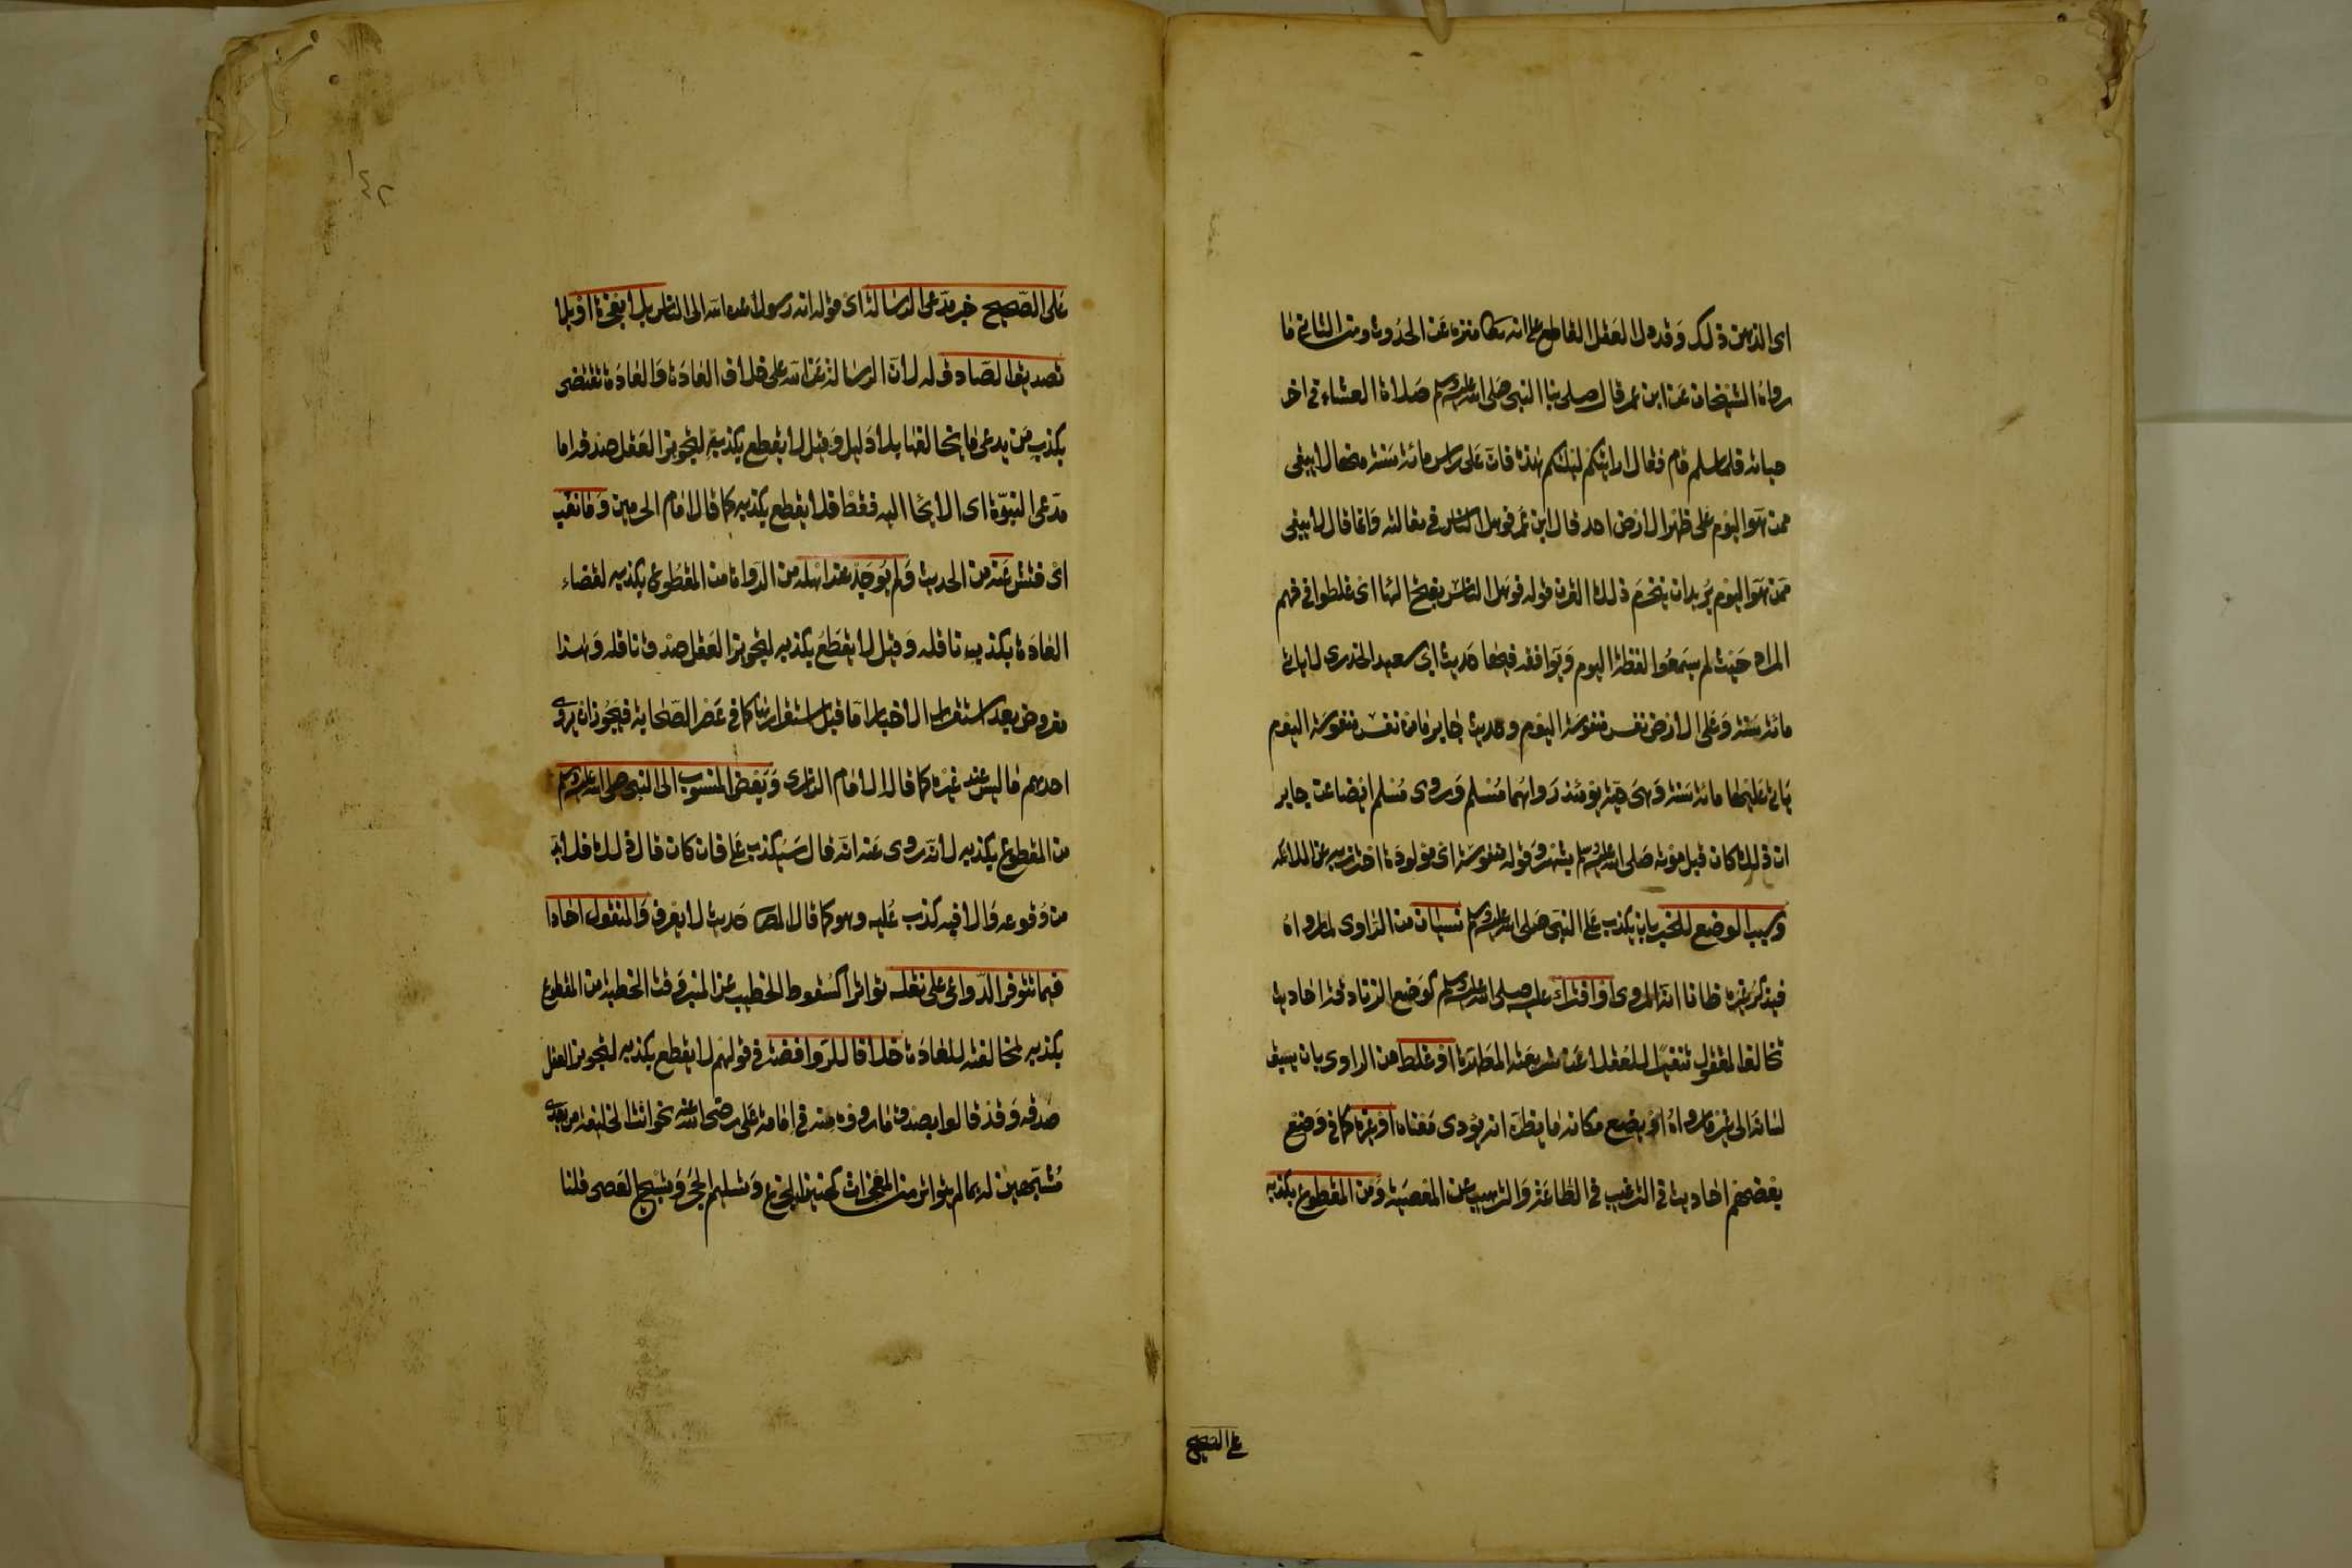 اى الذهن ذلك وقد دل العقل القاطع على انه تعا منزه عن الحدوث ومن الثانى ما
رواه الشيخان عن ابن عمر قال صلى بنا النبى صلى الله عليه وسلم صلاة العشاء فى اخر
حياته فلما سلم قام فقال ارايتكم ليلتكم هذه فان على راس مائة سنة منها لا يبقى
ممن هو اليوم على ظهر الارض احد قال ابن عمر فوهل الناس فى مقالته وانما قال لا يبقى
ممن هو اليوم يريد ان ينخرم ذلك القرن قوله فوهل الناس بفتح الها اى غلطوا فى فهم
المراد حيث لم يسمعوا لفظة اليوم ويوافقه فيها حديث ابى سعيد الخدرى لا ياتى
مائة سنة وعلى الارض نفس منفوسة اليوم وحديث جابر ما من نفس منفوسة اليوم
ياتى عليها مائة سنة وهى حية يومئذ رواهما مسلم وروى مسلم ايضا عن جابر
ان ذلك كان قبل موته صلى الله عليه وسلم بشهر وقوله منفوسة اى مولودة احترز به عن الملائكة
وسبب الوضع للخبر بان يكذب على النبى صلى الله عليه وسلم نسيان من الراوى لما رواه
فيذكر غيره ظانا انه المروى او افتراء عليه صلى الله عليه وسلم كوضع الزنادقة احاديث
تخالف المعقول تنفيرا للعقلا عن شريعته المطهرة او غلط من الراوى بان يسبق
لسانه الى غير ما رواه او يضع مكانه ما يظن انه يؤدى معناه او غيره كما فى وضع
بعضهم احاديث فى الترغيب فى الطاعة والترهيب عن المعصية ومن المقطوع بكذبه
على الصحيح
على الصحيح خبر مدعى الرسالة اى قوله انه رسول الله الى الناس بلا معجزة او بلا
تصديق الصادق له لان الرسالة عن الله على خلاف العادة والعادة تقتضى
بكذب من يدعى ما يخالفها بلا دليل وقيل لا يقطع بكذبه لتجويز العقل صدقه اما
مدعى النبوة اى الايحا اليه فقط فلا يقطع بكذبه كما قال امام الحرمين وما نقب
اى فتش عنه من الحديث ولم يوجد عند اهله من الرواة من المقطوع بكذبه لقضاء
العادة بكذب ناقله وقيل لا يقطع بكذبه لتجويز العقل صدق ناقله وهذا
مفروض بعد استقرار الاخبار اما قبل استقرارها كما فى عصر الصحابة فيجوز ان يروى
احدهم ما ليس عند غيره كما قال الامام الرازى وبعض المنسوب الى النبى صلى الله عليه وسلم
من المقطوع بكذبه لانه روى عنه انه قال سيكذب على فان كان قال ذلك فلا بد
من وقوعه والا فيه كذب عليه وهو كما قال المص حديث لا يعرف والمنقول احادا
فيما تتوفر الدواعى على نقله تواترا كسقوط الخطيب عن المنبر وقت الخطبة من المقطوع
بكذبه لمخالفته للعادة خلافا للروافضة فى قولهم لا يقطع بكذبه لتجويز العقل
صدقه وقد قالوا بصدق ما رووه منه فى امامة على رضى الله عنه نحو انت الخليفة من بعدى
مشبهين له بما لم يتواتر من المعجزات كحنين الجذع وتسليم الحجر وتسبيح الحصى قلنا